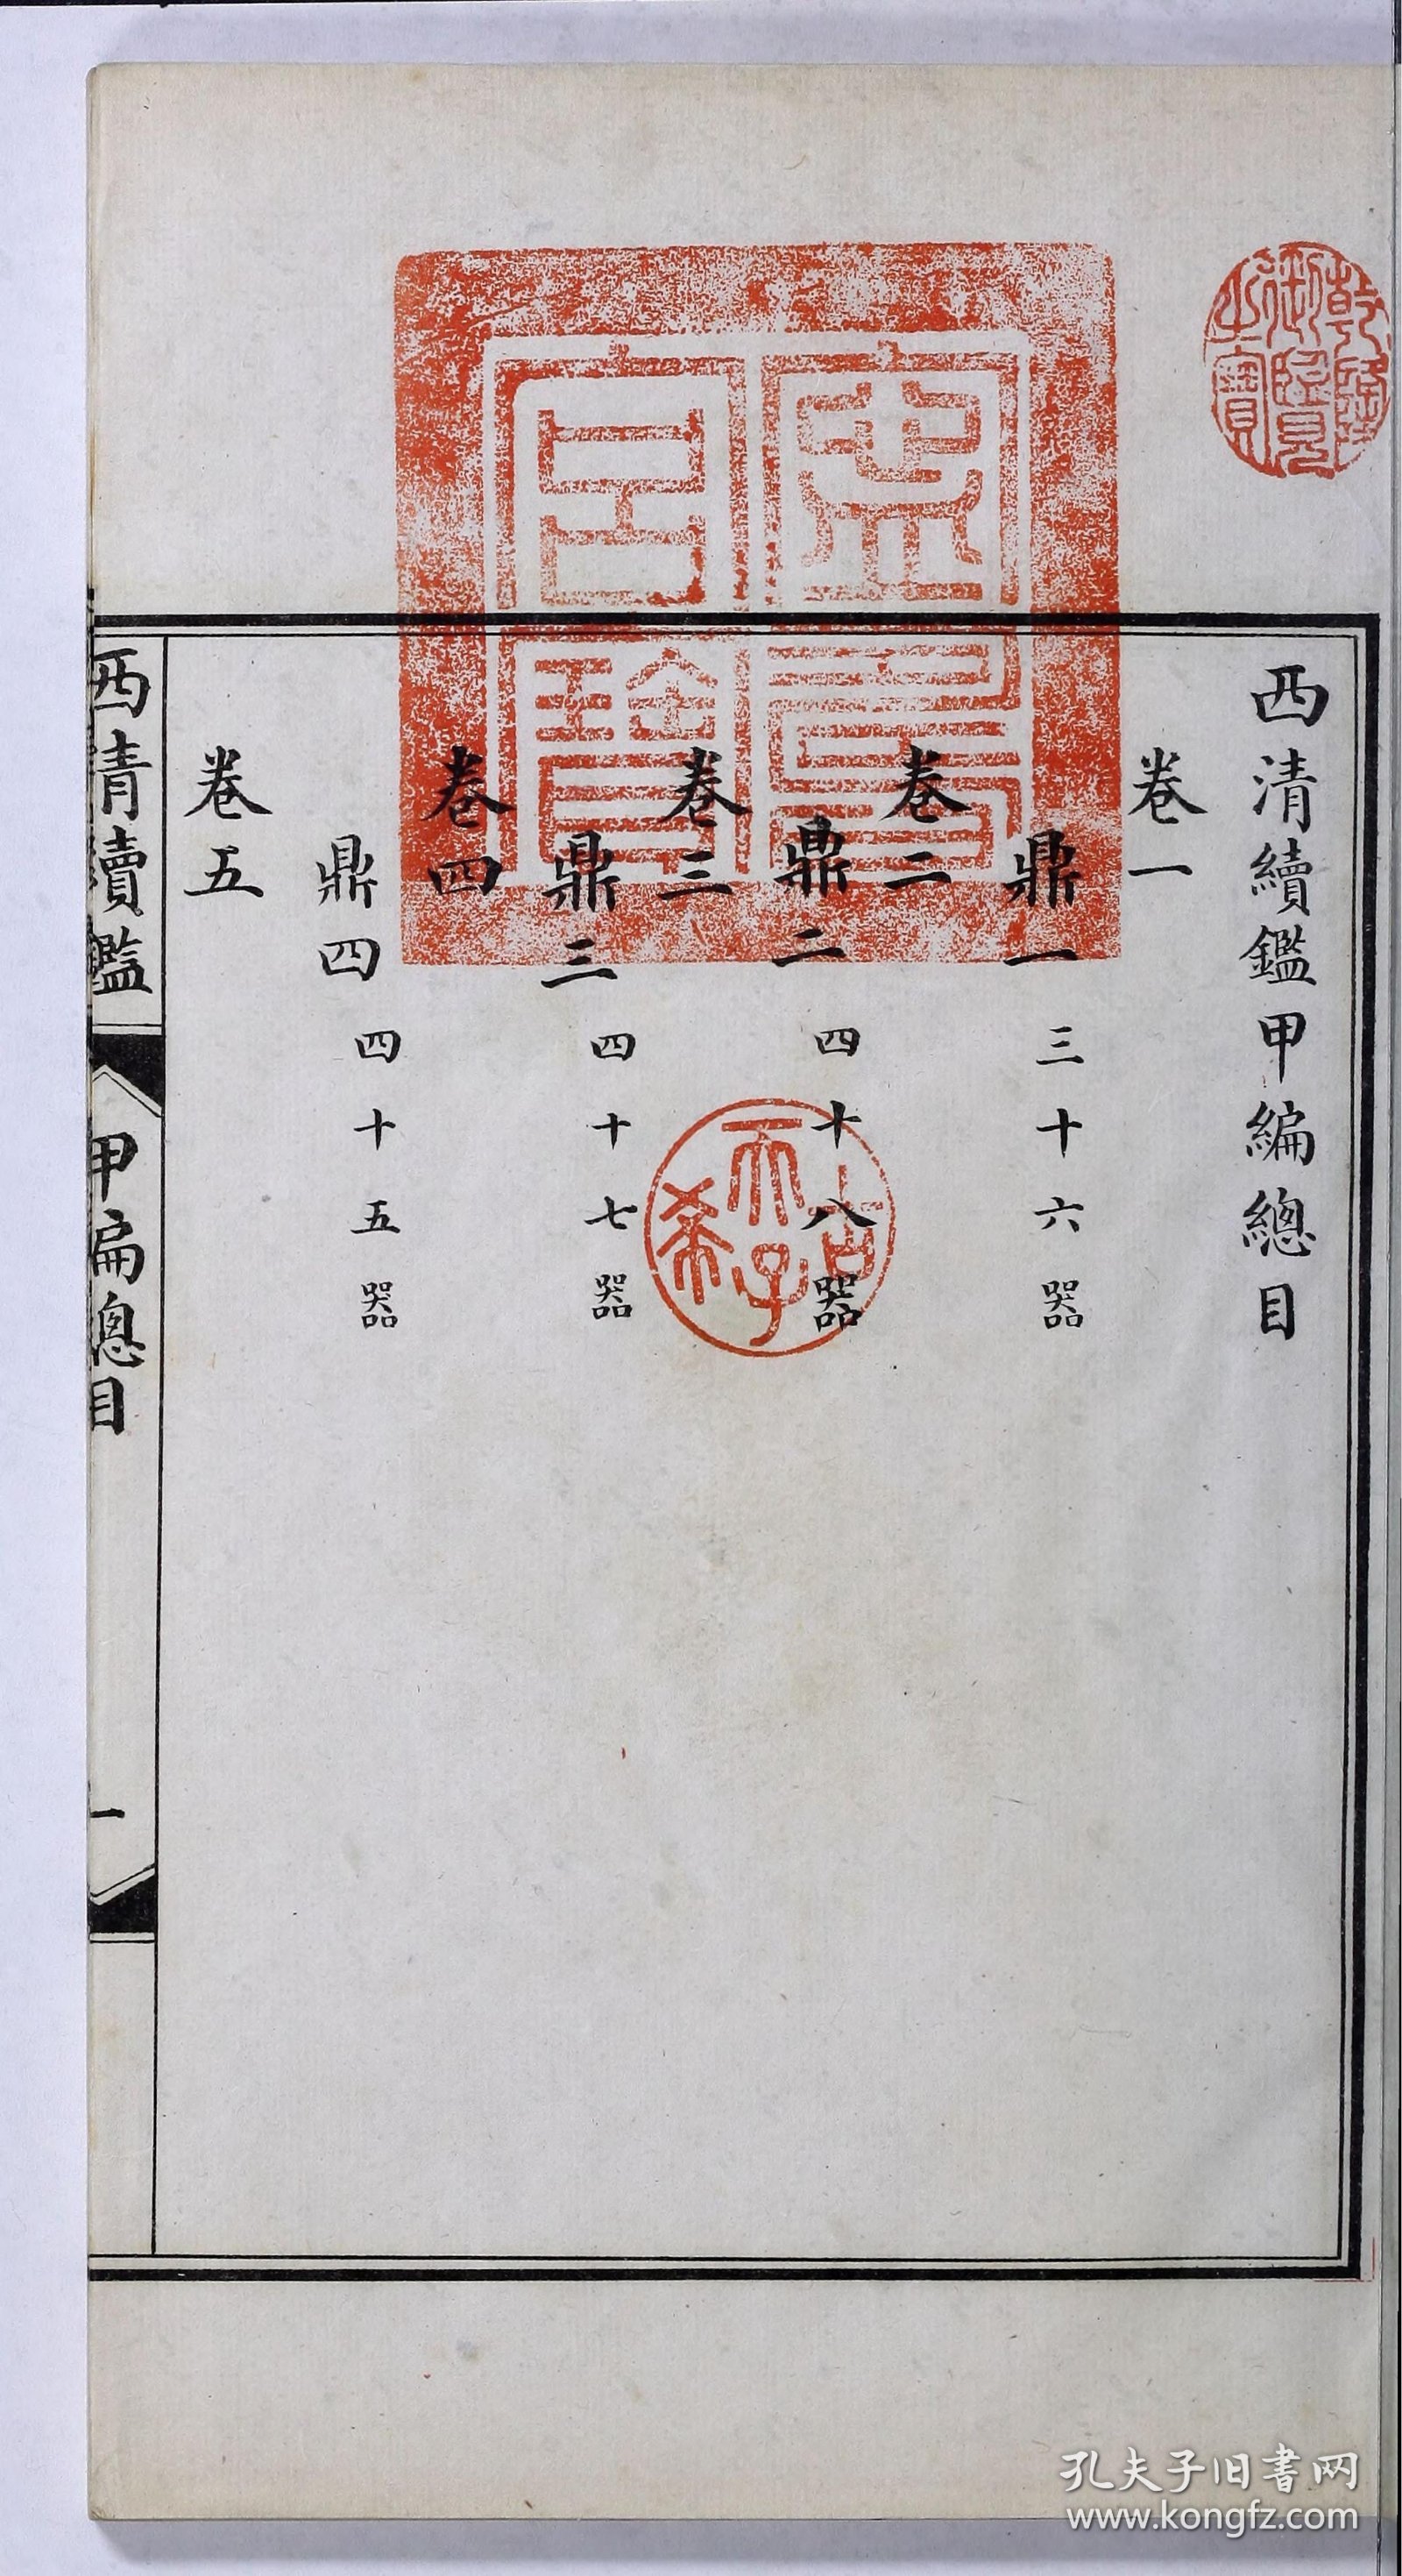 西清續鑑甲編總目
卷一
鼎一 三十六器
卷二
鼎二 四十八器
卷三
鼎三 四十七器
卷四
鼎四 四十五器
卷五
西清續鑑 甲編總目 一
乾隆御覽之寶
古希天子
孔夫子旧书网
www.kongfz.com